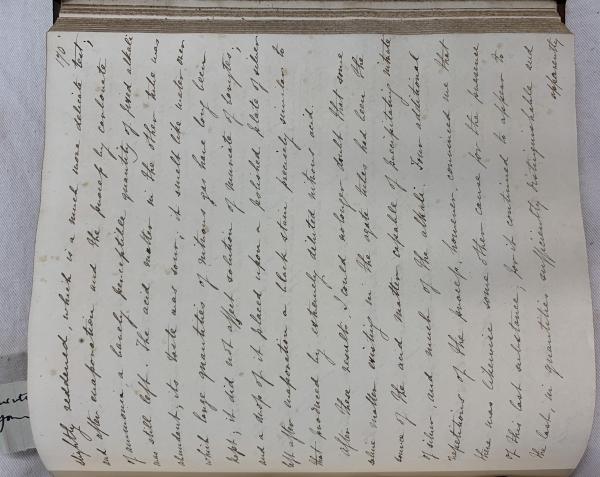 170
slightly reddened, which is a much more delicate test;
and after evaporation and the process by carbonate
of ammonia a barely perceptible quantity of fixed alkali
was still left. The acid matter in the other tube was
abundant; its taste was sour; it smelt like water over
which large quantities of nitrous gas have long been
kept; it did not affect solution of muriate of barytes;
and a drop of it placed upon a polished plate of silver
left after evaporation a black stain precisely similar to
that produced by extremely diluted nitrous acid.
After these results I could no longer doubt that some
saline matter existing in the agate tubes had been the
source of the acid matter capable of precipitating nitrate
of silver and much of the alkali. Four additional
repetitions of the process, however, convinced me that
there was likewise some other cause for the presence
of this last substance; for it continued to appear to
the last, in quantities sufficiently distinguishable and
apparently